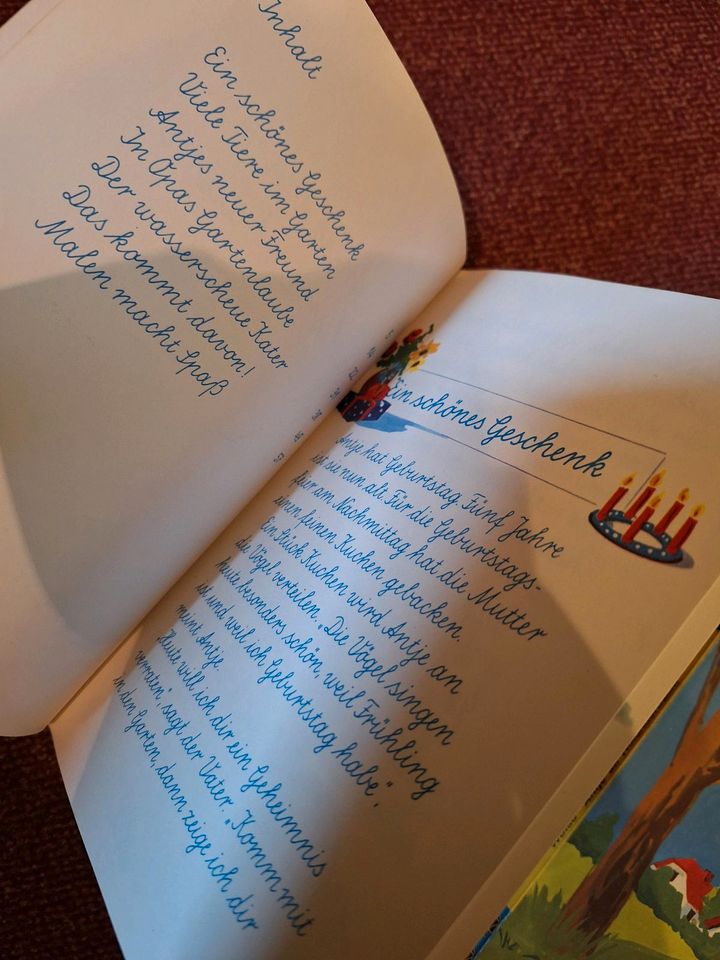 Inhalt
Ein schönes Geschenk
Viele Tiere im Garten
Antjes neuer Freund
In Opas Gartenlaube
Der wasserscheue Kater
Das kommt davon!
Malen macht Spaß
Ein schönes Geschenk
Antje hat Geburtstag. Fünf Jahre
ist sie nun alt. Für die Geburtstags-
feier am Nachmittag hat die Mutter
einen feinen Kuchen gebacken.
Ein Stück Kuchen wird Antje an
die Vögel verteilen. „Die Vögel singen
heute besonders schön, weil Frühling
ist und weil ich Geburtstag habe",
meint Antje.
„Heute will ich dir ein Geheimnis
verraten", sagt der Vater. „Komm mit
in den Garten, dann zeige ich dir